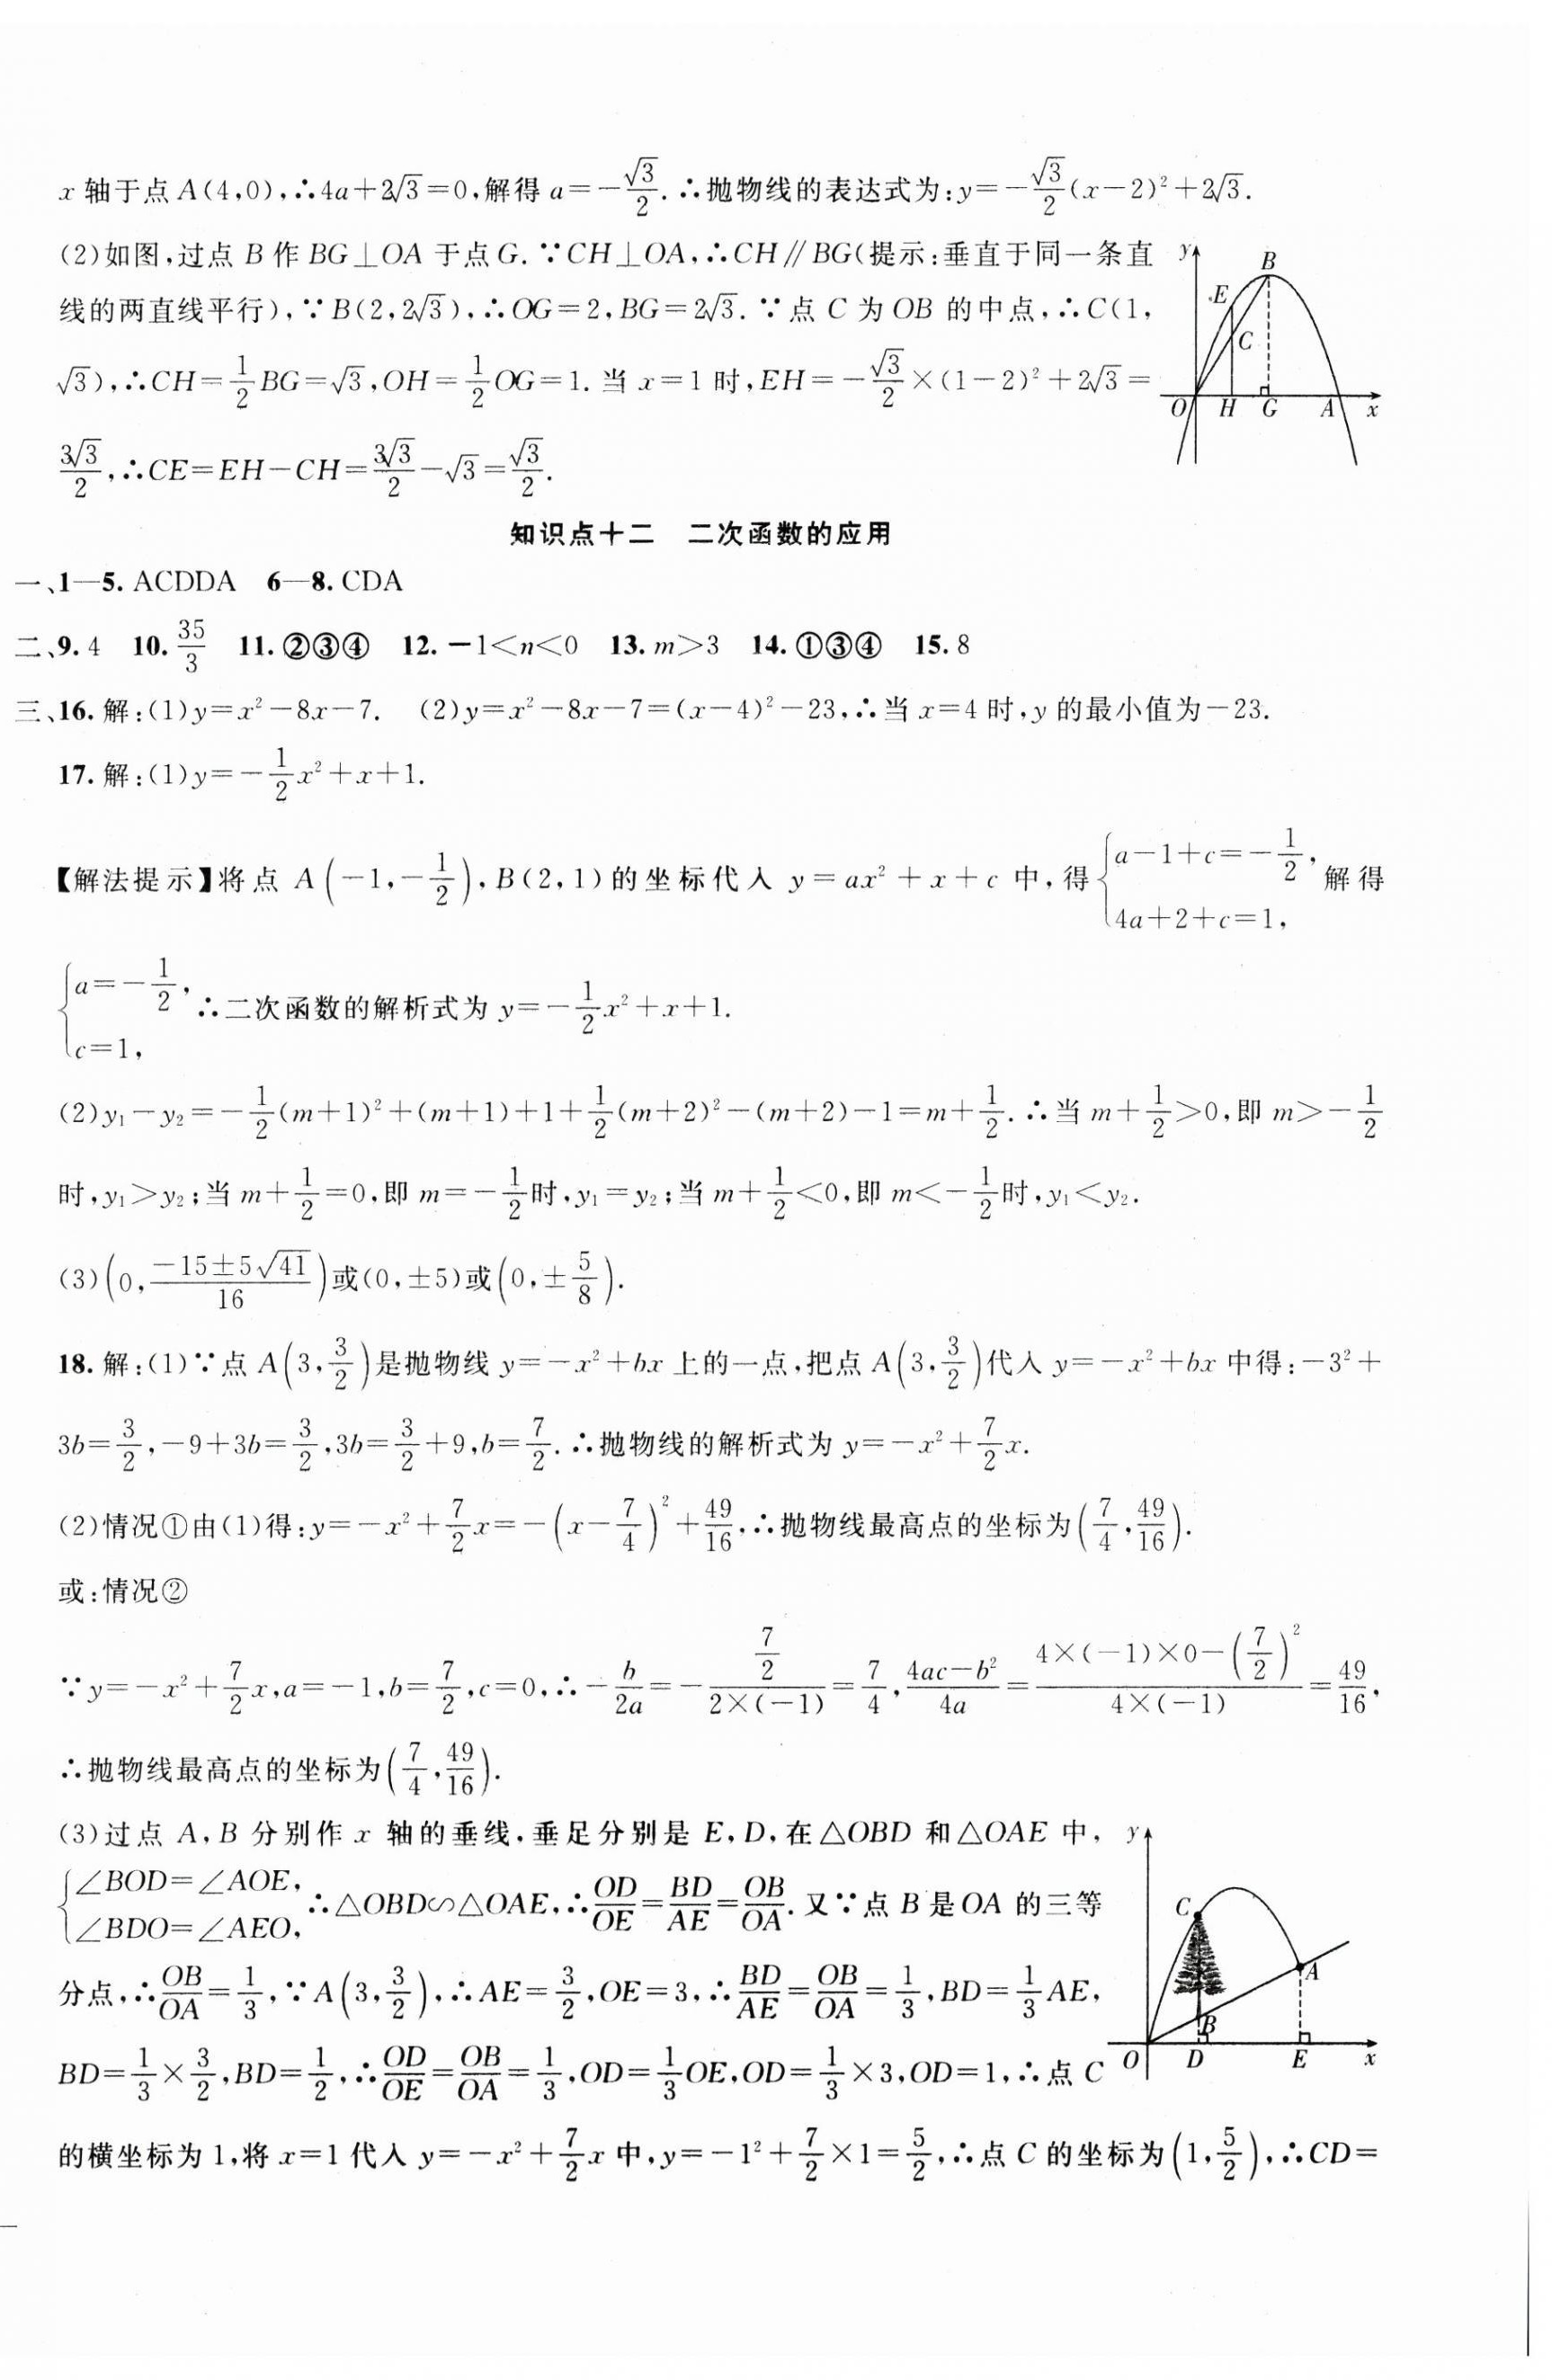 x 轴于点 A(4,0),∴4a+2√3=0,解得 a=-√3/2.∴抛物线的表达式为:y=-√3/2(x-2)²+2√3.
(2)如图,过点 B 作 BG⊥OA 于点 G.∵CH⊥OA,∴CH∥BG(提示:垂直于同一条直
线的两直线平行),∵B(2,2√3),∴OG=2,BG=2√3.∵点 C 为 OB 的中点,∴C(1,
√3),∴CH=1/2BG=√3,OH=1/2OG=1.当 x=1 时,EH=-√3/2×(1-2)²+2√3=
3√3/2,∴CE=EH-CH=3√3/2-√3=√3/2.
y
B
E
C
O H G A x
知识点十二 二次函数的应用
一、1—5.ACDDA 6—8.CDA
二、9.4 10.35/3 11.②③④ 12.-1<n<0 13.m>3 14.①③④ 15.8
三、16.解:(1)y=x²-8x-7. (2)y=x²-8x-7=(x-4)²-23,∴当 x=4 时,y 的最小值为-23.
17.解:(1)y=-1/2x²+x+1.
【解法提示】将点 A(-1,-1/2),B(2,1)的坐标代入 y=ax²+x+c 中,得{a-1+c=-1/2, 4a+2+c=1, 解得
{a=-1/2, c=1, ∴二次函数的解析式为 y=-1/2x²+x+1.
(2)y₁-y₂=-1/2(m+1)²+(m+1)+1+1/2(m+2)²-(m+2)-1=m+1/2.∴当 m+1/2>0,即 m>-1/2
时,y₁>y₂;当 m+1/2=0,即 m=-1/2时,y₁=y₂;当 m+1/2<0,即 m<-1/2时,y₁<y₂.
(3)(0,(-15±5√41)/16)或(0,±5)或(0,±5/8).
18.解:(1)∵点 A(3,3/2)是抛物线 y=-x²+bx 上的一点,把点 A(3,3/2)代入 y=-x²+bx 中得:-3²+
3b=3/2,-9+3b=3/2,3b=3/2+9,b=7/2.∴抛物线的解析式为 y=-x²+7/2x.
(2)情况①由(1)得:y=-x²+7/2x=-(x-7/4)²+49/16,∴抛物线最高点的坐标为(7/4,49/16).
或:情况②
∵y=-x²+7/2x,a=-1,b=7/2,c=0,∴-b/2a=-(7/2)/(2×(-1))=7/4,(4ac-b²)/4a=(4×(-1)×0-(7/2)²)/(4×(-1))=49/16,
∴抛物线最高点的坐标为(7/4,49/16).
(3)过点 A,B 分别作 x 轴的垂线,垂足分别是 E,D,在△OBD 和△OAE 中,
{∠BOD=∠AOE, ∠BDO=∠AEO, ∴△OBD∽△OAE,∴OD/OE=BD/AE=OB/OA.又∵点 B 是 OA 的三等
分点,∴OB/OA=1/3,∵A(3,3/2),∴AE=3/2,OE=3,∴BD/AE=OB/OA=1/3,BD=1/3AE,
BD=1/3×3/2,BD=1/2,∴OD/OE=OB/OA=1/3,OD=1/3OE,OD=1/3×3,OD=1,∴点 C
y
C
A
B
O D E x
的横坐标为 1,将 x=1 代入 y=-x²+7/2x 中,y=-1²+7/2×1=5/2,∴点 C 的坐标为(1,5/2),∴CD=